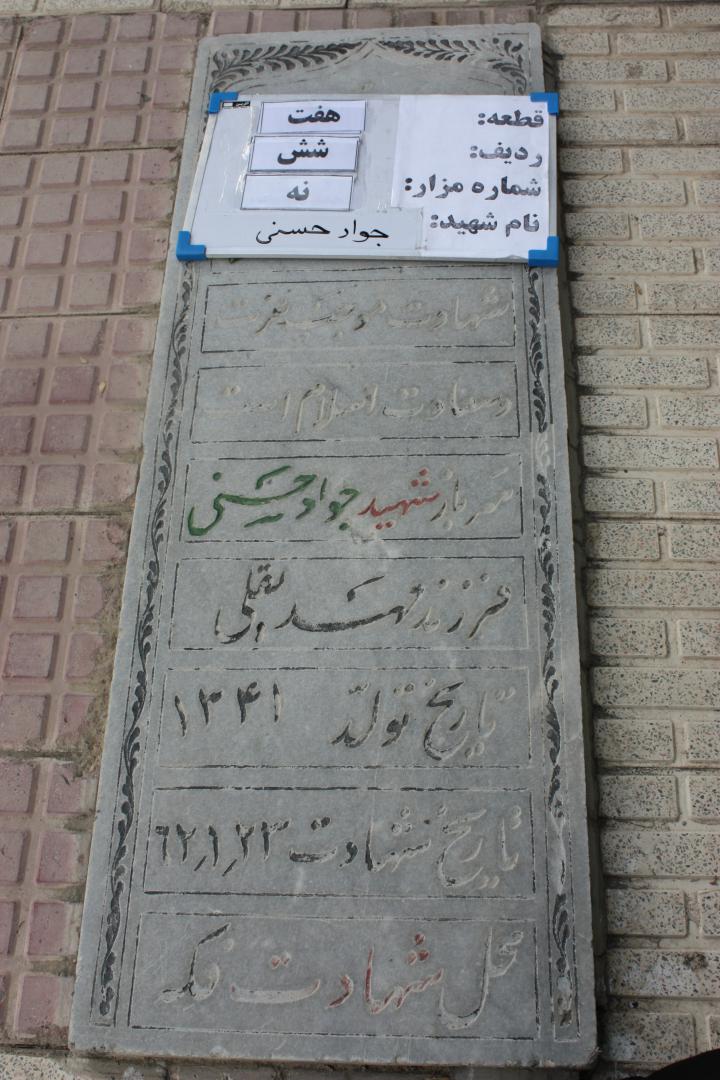 قطعه: هفت
ردیف: شش
شماره مزار: نه
نام شهید: جواد حسنی
شهادت موجب عزت
وسعادت اسلام است
سرباز شهید جواد حسنی
فرزند مهدیقلی
تاریخ تولد ۱۳۴۱
تاریخ شهادت ۶۲٫۱٫۲۳
محل شهادت فکه